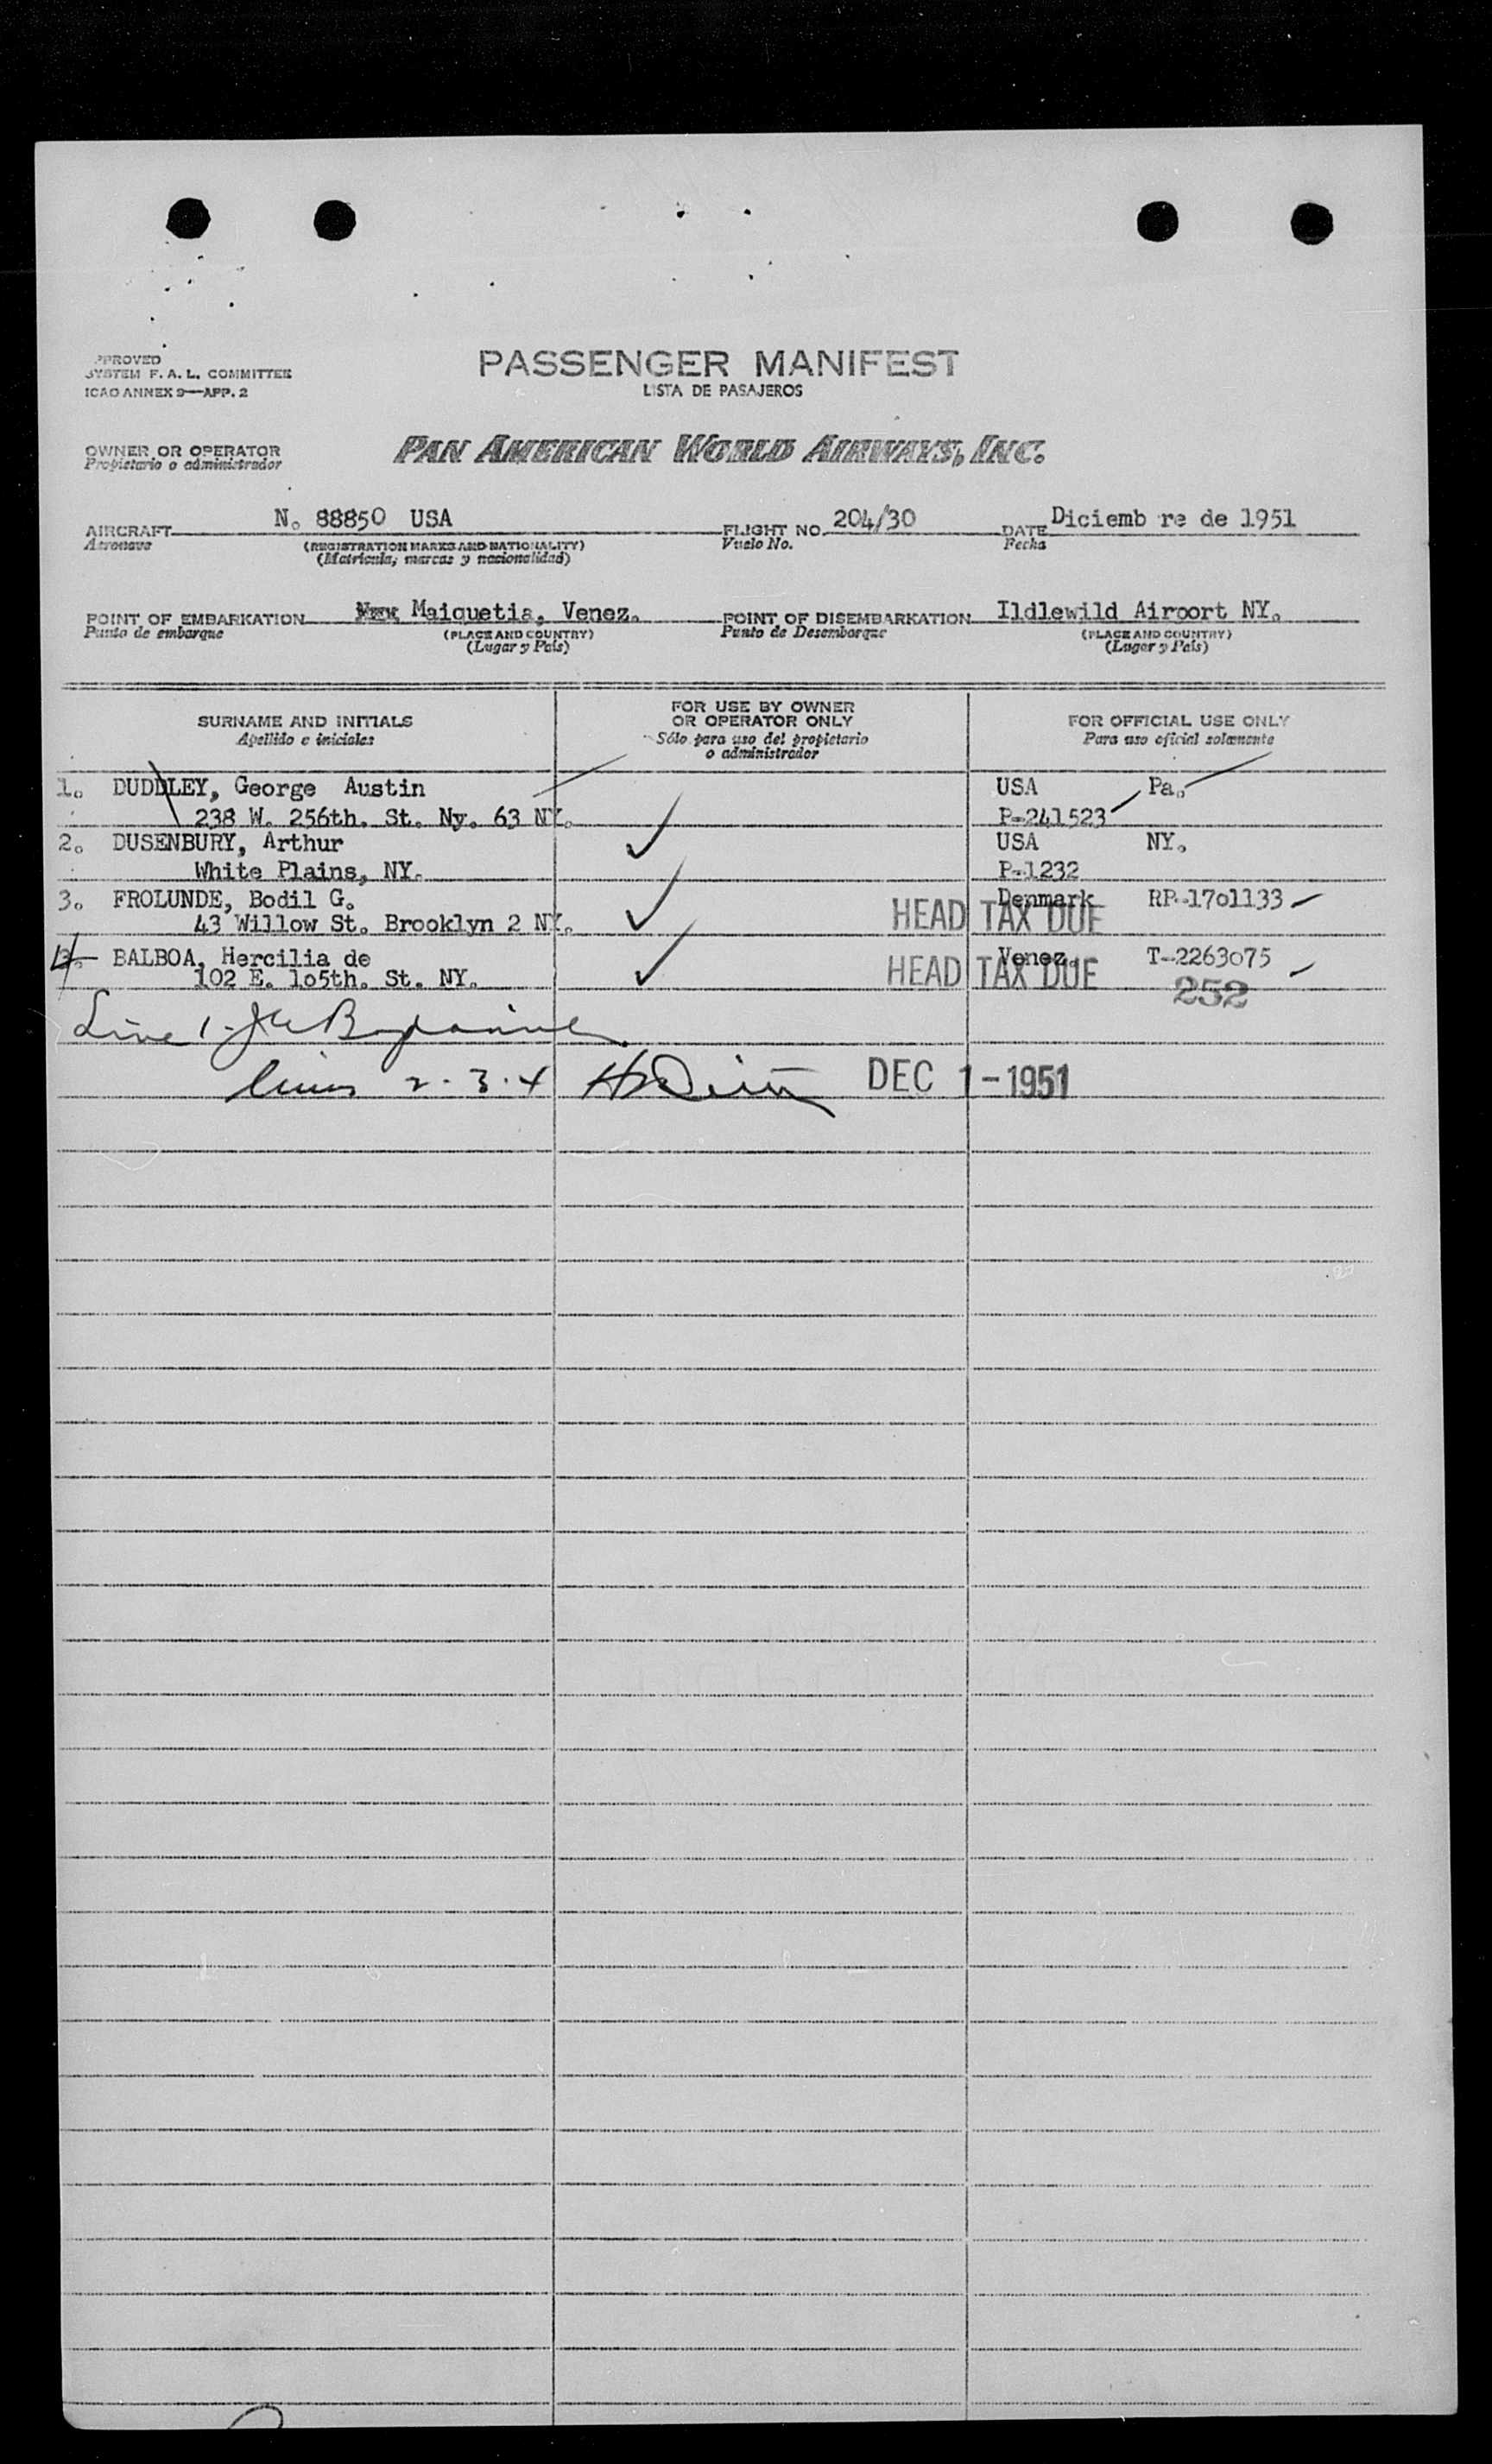 PPROVED
SYSTEM F. A. L. COMMITTEE
ICAO ANNEX 9—APP. 2
PASSENGER MANIFEST
LISTA DE PASAJEROS
OWNER OR OPERATOR
Propietario o administrador
PAN AMERICAN WORLD AIRWAYS, INC.
AIRCRAFT N. 88850 USA FLIGHT NO. 204/30 DATE Diciemb re de 1951
Aeronave (REGISTRATION MARKS AND NATIONALITY) Vuelo No. Fecha
(Matricula, marcas y nacionalidad)
POINT OF EMBARKATION Maiquetia, Venez. POINT OF DISEMBARKATION Ildlewild Airport NY.
Punto de embarque (PLACE AND COUNTRY) Punto de Desembarque (PLACE AND COUNTRY)
(Lugar y País) (Lugar y País)
SURNAME AND INITIALS
Apellido e iniciales
FOR USE BY OWNER
OR OPERATOR ONLY
Sólo para uso del propietario
o administrador
FOR OFFICIAL USE ONLY
Para uso oficial solamente
1. DUDDLEY, George Austin USA Pa.
238 W. 256th. St. Ny. 63 NY. P-241523
2. DUSENBURY, Arthur USA NY.
White Plains, NY. P-1232
3. FROLUNDE, Bodil G. Denmark RP-17o1133
43 Willow St. Brooklyn 2 NY. HEAD TAX DUE
4. BALBOA, Hercilia de Venez. T-2263o75
102 E. 1o5th. St. NY. HEAD TAX DUE 252
Line 1-
lines 2-3-4 DEC 1-1951